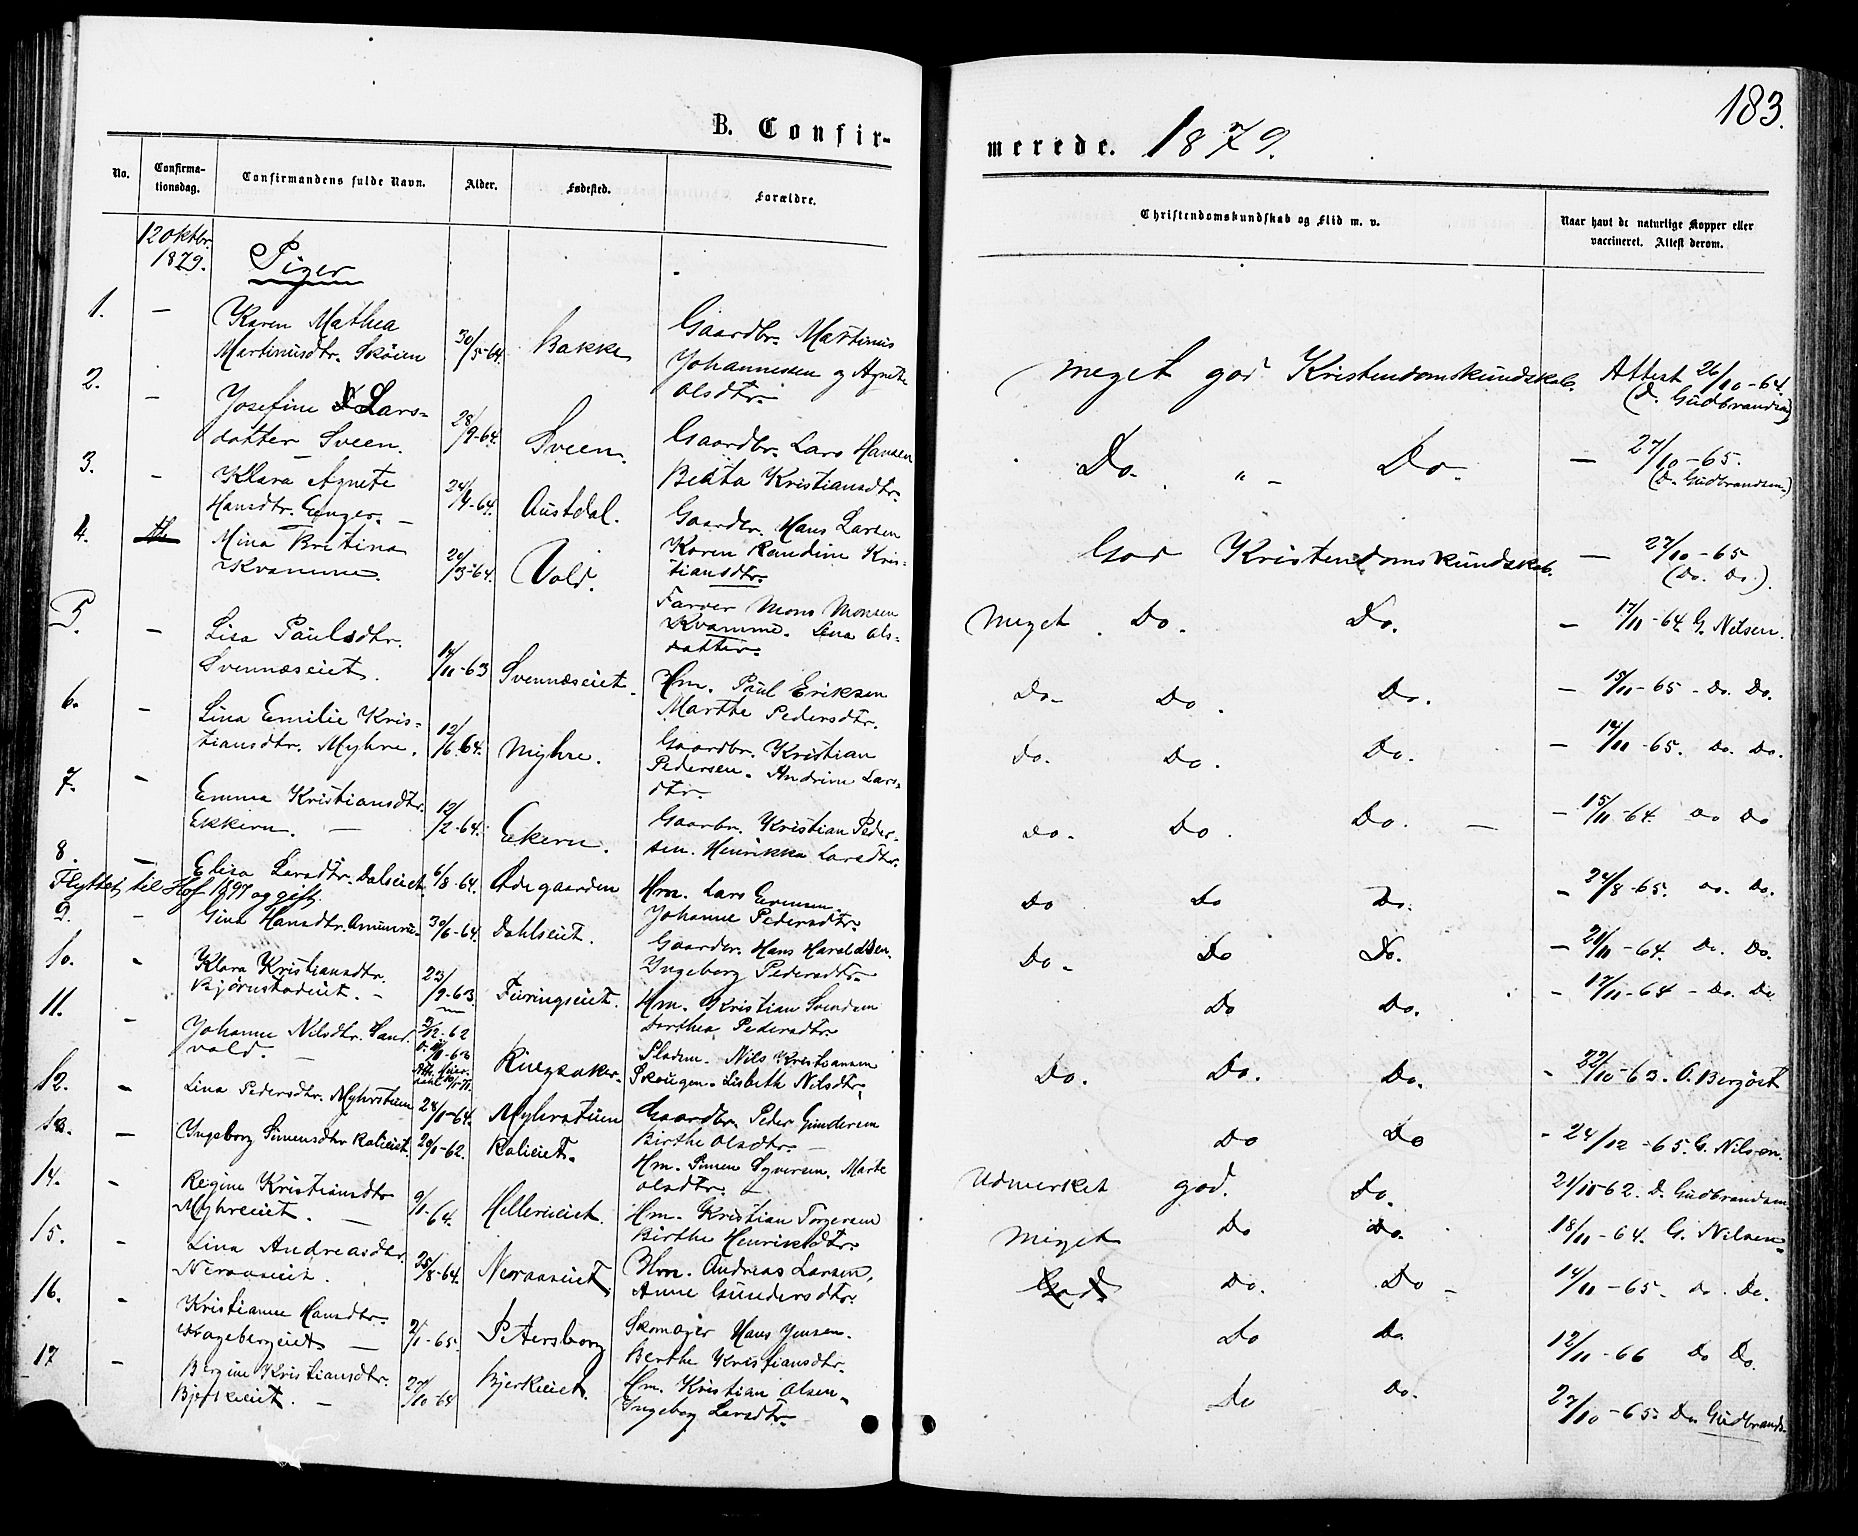 183.
B. Confir-
merede. 1879.
No.
Confirma-
tionsdag.
Confirmandens fulde Navn.
Alder.
Fødested.
Forældre.
Christendomskundskab og Flid m. v.
Naar havt de naturlige Kopper eller
vaccineret. Attest derom.
12 oktbr.
1879.
Piger
1. –
Karen Mathea
Martinusdtr. Skøien
30/5-64.
Bakke
Gaardbr. Martinus
Johannessen og Agnethe
Olsdtr.
Meget god Kristendomskundskab.
Attest 26/10-64
(D. Gudbrandsen)
2. –
Josefine Lars-
datter Sveen.
28/9-64.
Sveen.
Gaardbr. Lars Hansen
Beata Kristiansdtr.
Do. " – Do.
– 27/10-65.
(D. Gudbrandsen)
3. –
Klara Agnete
Hansdtr. Enger. –
24/4-64.
Austdal.
Gaardbr. Hans Larsen
Karen Randine Kris-
tiansdtr.
God Kristendomskundskab.
– 27/10-65
(Do. Do.).
4.
Mina Kristina
Kvamme.
20/3-64.
Vold.
Farver Mons Monsen
Kvamme. Lena Ols-
datter.
Meget Do. Do.
– 17/11-64. G. Nilsen.
5. –
Lisa Paulsdtr.
Svennæseiet.
14/11-63
Svennæseiet.
Hm. Paul Eriksen
Marthe Pedersdtr.
Do. Do. Do.
– 15/11-65 – Do. Do.
6. –
Lina Emilie Kris-
tiansdtr. Myhre.
12/6-64.
Myhre.
Gaardbr. Kristian
Pedersen. Andrine Lars-
dtr.
Do. Do. Do.
– 14/11-65. Do. Do.
7. –
Emma Kristiansdtr.
Ekkern. –
12/2-64.
Ekern.
Gaarbr. Kristian Peder-
sen. Henrikka Larsdtr.
Do. Do. Do. –
– 15/11-64. Do Do
8. –
Elisa Larsdtr. Dalseiet
6/8-64.
Ødegaarden
Hm. Lars Evensen.
Johanne Pedersdtr.
Do Do Do.
– 24/8-65. Do. Do.
Flyttet til Hof 1897 og gift.
9. –
Gina Hansdtr.
30/6-64.
Dahlseiet.
Gaardbr. Hans Haraldsen.
Ingeborg Pedersdtr.
Do. Do Do.
– 21/11-64. Do. Do.
10. –
Klara Kristiansdtr.
Bjørnstadeiet. –
23/9-63.
Furingseiet.
Hm. Kristian Svendsen
Dorthea Pedersdtr.
Do Do.
– 17/11-64 – Do. Do
11. –
Johanne Nilsdtr. Sand-
vold. –
5/12-62
Ringsaker.
Pladsm. Nils Kristiansen
Skougen. Lisbeth Nilsdtr.
Do. Do. Do.
– 22/10-63. O. Berjset
12. –
Lina Pedersdtr. Myhrstuen
24/1-64.
Myhrstuen
Gaardbr. Peder Gundersen
Birthe Olsdtr. –
Do Do
– 24/12-65. G. Nilsen.
13. –
Ingeborg Simensdtr Kalieiet.
20/1-62.
Kalieiet.
Hm. Simen Syversen. Marte
Olsdtr. –
Udmerket god. Do.
21/10-62. D. Gudbrandsen
14. –
Regine Kristiansdtr
Myhreeiet. –
9/1-64.
Hellerueiet.
Hm. Kristian Torgersen
Birthe Henriksdtr.
Meget Do Do.
18/11-64. G. Nilsen.
15. –
Lina Andreasdtr.
Neraaseiet.
25/8-64.
Neraaseiet
Hm. Andreas Larsen,
Anne Gundersdtr.
God. Do. Do –
14/11-65. Do. Do.
16. –
Kristianne Hansdtr.
Hagebergeiet –
2/1-65.
Petersborg
Skomager Hans Jensen.
Berthe Kristiansdtr.
Do Do
12/11-66 Do Do.
17 –
Bergine Kristiansdtr.
Bjerkeeiet. –
27/10-64
Bjerkeeiet.
Hm. Kristian Olsen.
Ingeborg Larsdtr.
Do Do.
27/10-65. D. Gudbrands.